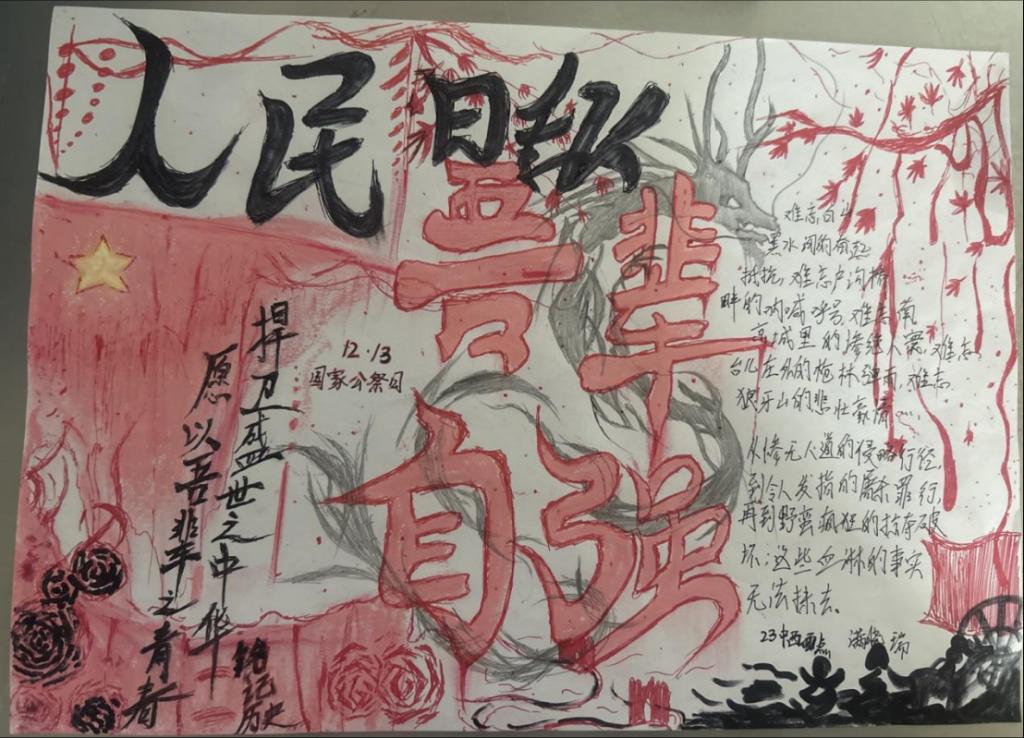 人民日报
吾辈
自强
12.13
国家公祭日
捍卫盛世之中华
愿以吾辈之青春
铭记
历史
难忘白山
黑水间的奋起
抵抗,难忘卢沟桥
畔的呐喊呼号,难忘南
京城里的惨绝人寰,难忘
台儿庄外的枪林弹雨,难忘
狼牙山的悲壮豪情……
从惨无人道的侵略行径,
到令人发指的屠杀罪行,
再到野蛮疯狂的掠夺破
坏;这些血淋的事实
无法抹去。
23中西